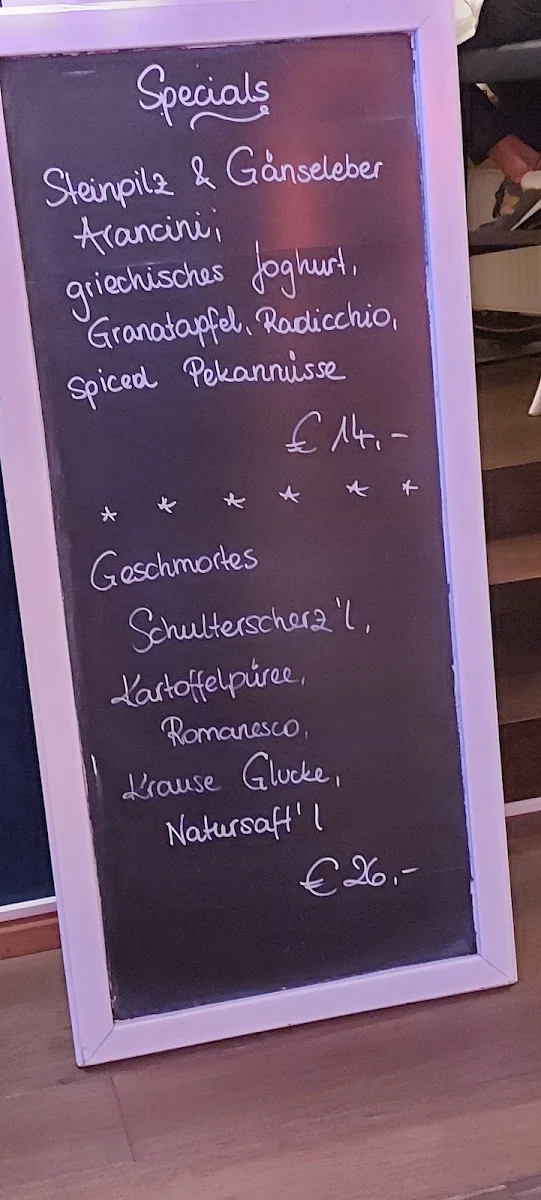 Specials
Steinpilz & Gänseleber
Arancini,
griechisches Joghurt,
Granatapfel, Radicchio,
spiced Pekannüsse
€ 14,-
* * * * * *
Geschmortes
Schulterscherz'l,
Kartoffelpüree,
Romanesco,
Krause Glucke,
Natursaft'l
€ 26,-